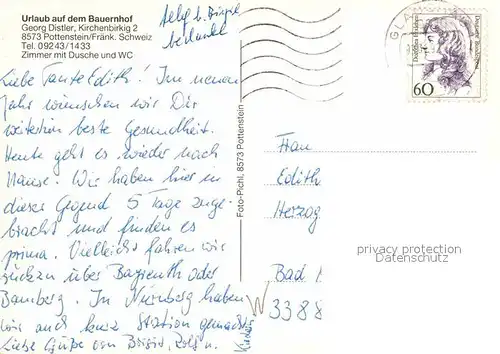 Urlaub auf dem Bauernhof
Georg Distler, Kirchenbirkig 2
8573 Pottenstein/Fränk. Schweiz
Tel. 09243/1433
Zimmer mit Dusche und WC
Liebe Tante Edith! Im neuen
Jahr wünschen wir Dir
weiterhin beste Gesundheit.
Heute geht es wieder nach
Hause. Wir haben hier in
dieser Gegend 5 Tage zuge-
bracht und finden es
prima. Vielleicht fahren wir
zurück über Bayreuth oder
Bamberg. In Nürnberg haben
wir auch kurz Station gemacht.
Liebe Grüße von Birgit, Rolf u.
Foto-Pichl, 8573 Pottenstein
GLA
Deutsche Bundespost
60
Frau
Edith
Herzog
Bad
W 3388
privacy protection
Datenschutz